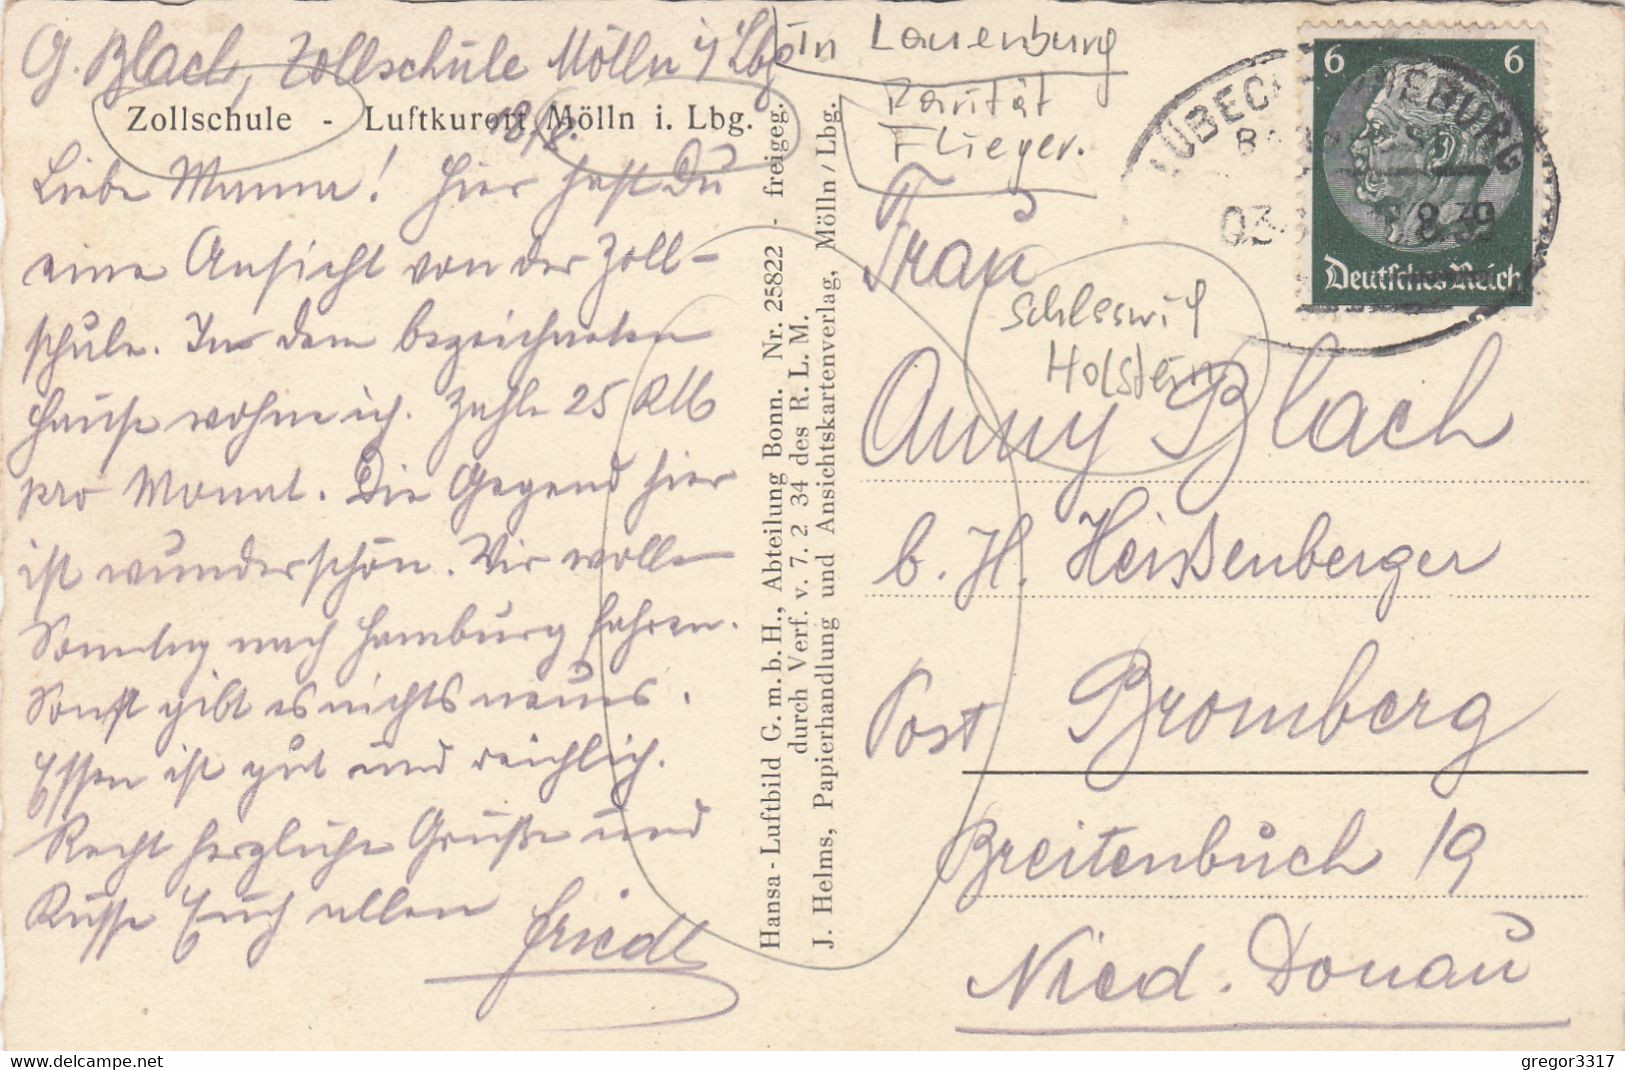 G. Blach, Zollschule Mölln i/Lbg.
Zollschule - Luftkurort Mölln i. Lbg.
Liebe Mama! Hier hast Du
eine Ansicht von der Zoll-
schule. In dem bezeichneten
Hause wohne ich. Zahle 25 RM
pro Monat. Die Gegend hier
ist wunderschön. Wir wollen
Sonntag nach Hamburg fahren.
Sonst gibt es nichts neues.
Essen ist gut und reichlich.
Recht herzliche Grüße und
Küsse Euch allen
Friedl
Hansa-Luftbild G. m. b. H., Abteilung Bonn. Nr. 25822 - freigeg.
durch Verf. v. 7. 2 34 des R. L. M.
J. Helms, Papierhandlung und Ansichtskartenverlag, Mölln/Lbg.
in Lauenburg
Rarität
Flieger.
Schleswig
Holstein
6 6
Deutsches Reich
8.39
Frau
Anny Blach
b. H. Heißenberger
Post Bromberg
Breitenbuch 19
Nied. Donau
gregor3317